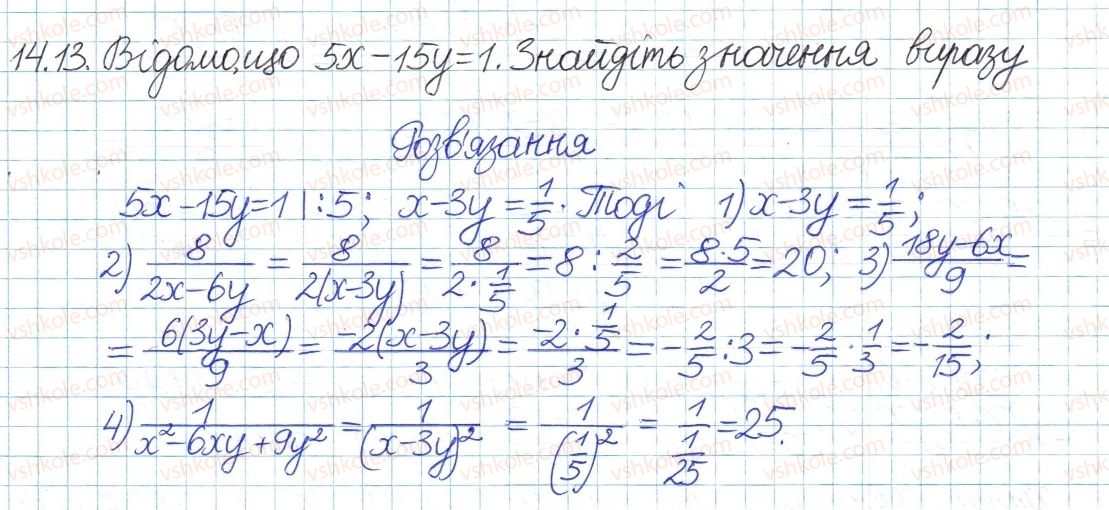 14.13. Відомо, що 5x-15y=1. Знайдіть значення виразу
Розв'язання
5x-15y=1 |:5; x-3y=1/5. Тоді 1) x-3y=1/5;
2) 8/(2x-6y) = 8/(2(x-3y)) = 8/(2·1/5) = 8:2/5 = (8·5)/2 = 20; 3) (18y-6x)/9 =
= 6(3y-x)/9 = -2(x-3y)/3 = (-2·1/5)/3 = -2/5:3 = -2/5·1/3 = -2/15;
4) 1/(x²-6xy+9y²) = 1/(x-3y)² = 1/(1/5)² = 1/(1/25) = 25.